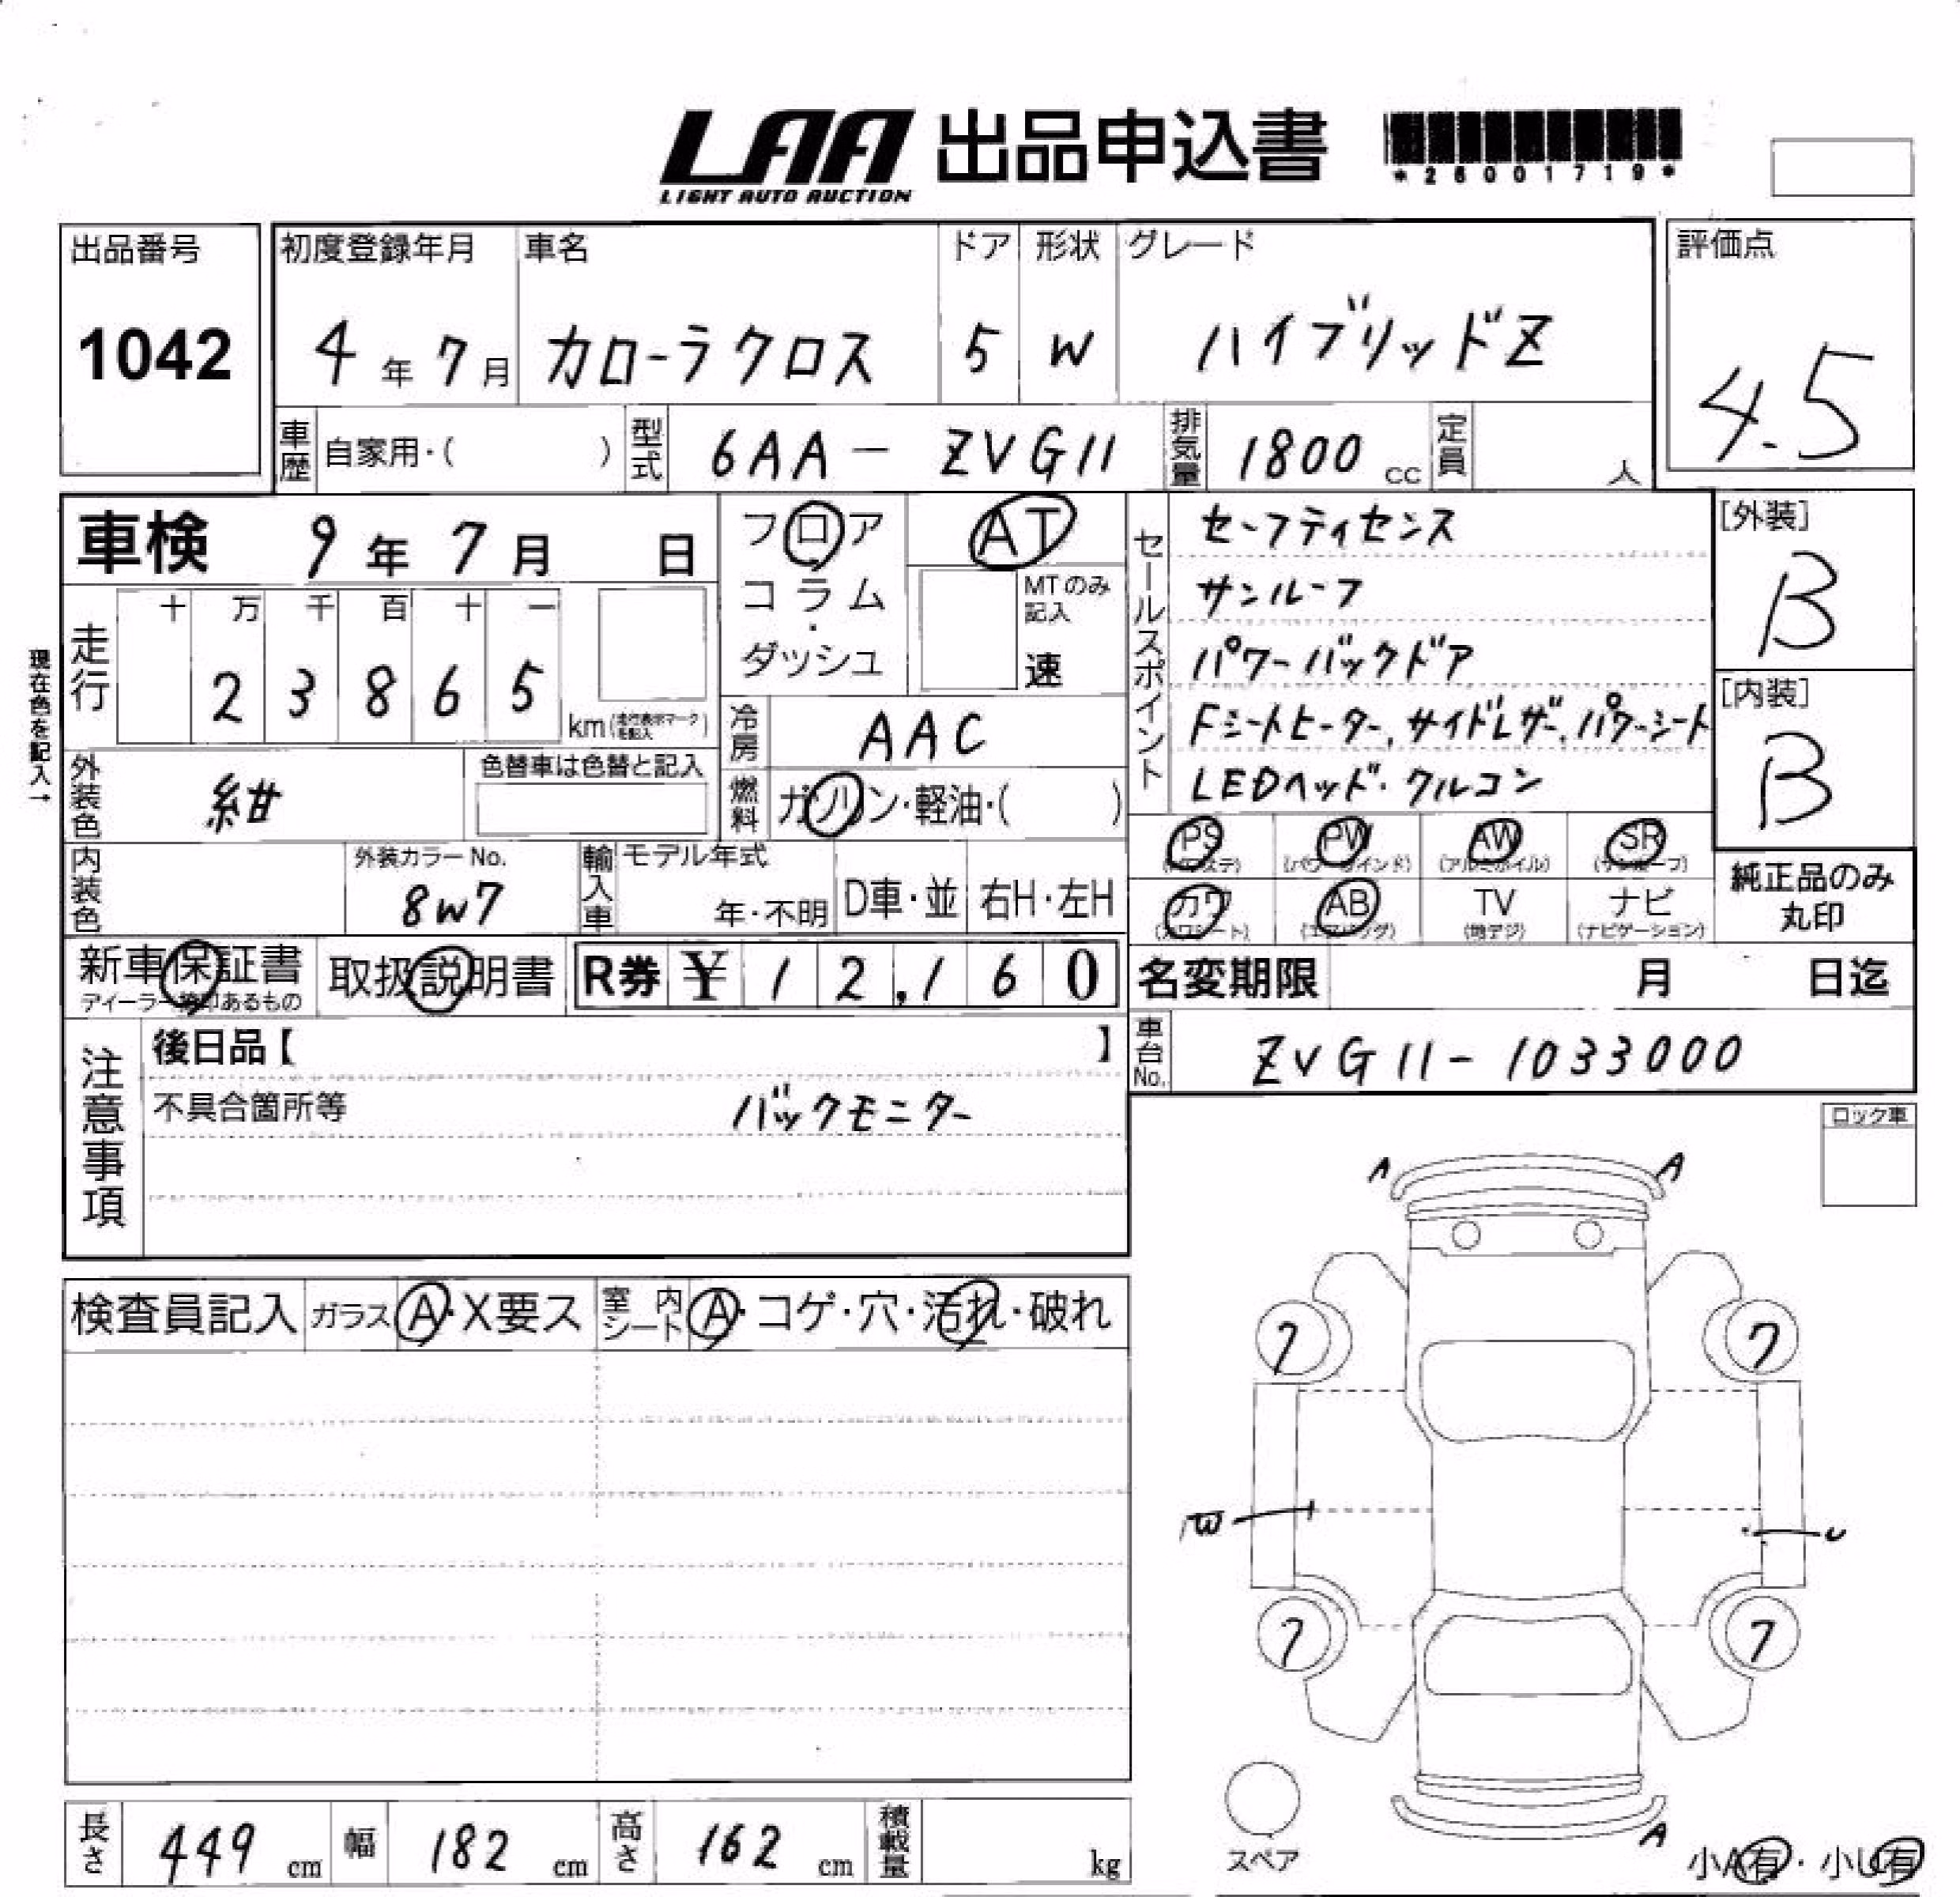 LAA 出品申込書
LIGHT AUTO AUCTION
*26001719*
出品番号
1042
初度登録年月 車名 ドア 形状 グレード
4年7月 カローラクロス 5 W ハイブリッドZ
評価点
4.5
車歴 自家用・( ) 型式 6AA - ZVG11 排気量 1800 cc 定員 人
車検 9年7月 日
フロア・コラム・ダッシュ
AT
MTのみ記入
速
セールスポイント
セーフティセンス
サンルーフ
パワーバックドア
Fシートヒーター、サイドレザー、パワーシート
LEDヘッド・クルコン
[外装]
B
[内装]
B
現在色を記入→
走行 十 万 千 百 十 一
2 3 8 6 5 km (走行表示マークを記入)
冷房 AAC
外装色 紺 色替車は色替と記入
燃料 ガソリン・軽油・( )
内装色 外装カラーNo. 8W7
輸入車 モデル年式 年・不明 D車・並 右H・左H
PS PW (パワーウインド) AW (アルミホイル) SR (サンルーフ)
カワ (カワシート) AB (エアバッグ) TV (地デジ) ナビ (ナビゲーション)
純正品のみ丸印
新車保証書 ディーラー捺印あるもの 取扱説明書 R券 ¥12,160
名変期限 月 日迄
車台No. ZVG11-1033000
注意事項
後日品【 】
不具合箇所等 バックモニター
ロック車
A A
7 7
W U
7 7
A
検査員記入 ガラス A・X要ス 室内シート A・コゲ・穴・汚れ・破れ
スペア
小A有・小U有
長さ 449 cm 幅 182 cm 高さ 162 cm 積載量 kg